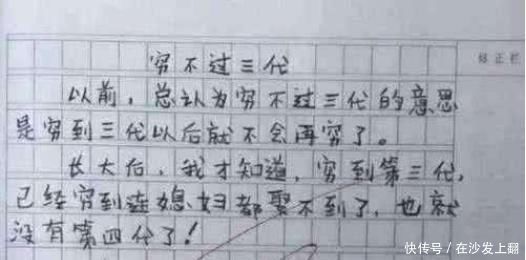 穷不过三代
修正栏
以前，总认为穷不过三代的意思
是穷到三代以后就不会再穷了。
长大后，我才知道，穷到第三代，
已经穷到连媳妇都娶不到了，也就
没有第四代了！
快传号／在沙发上翻